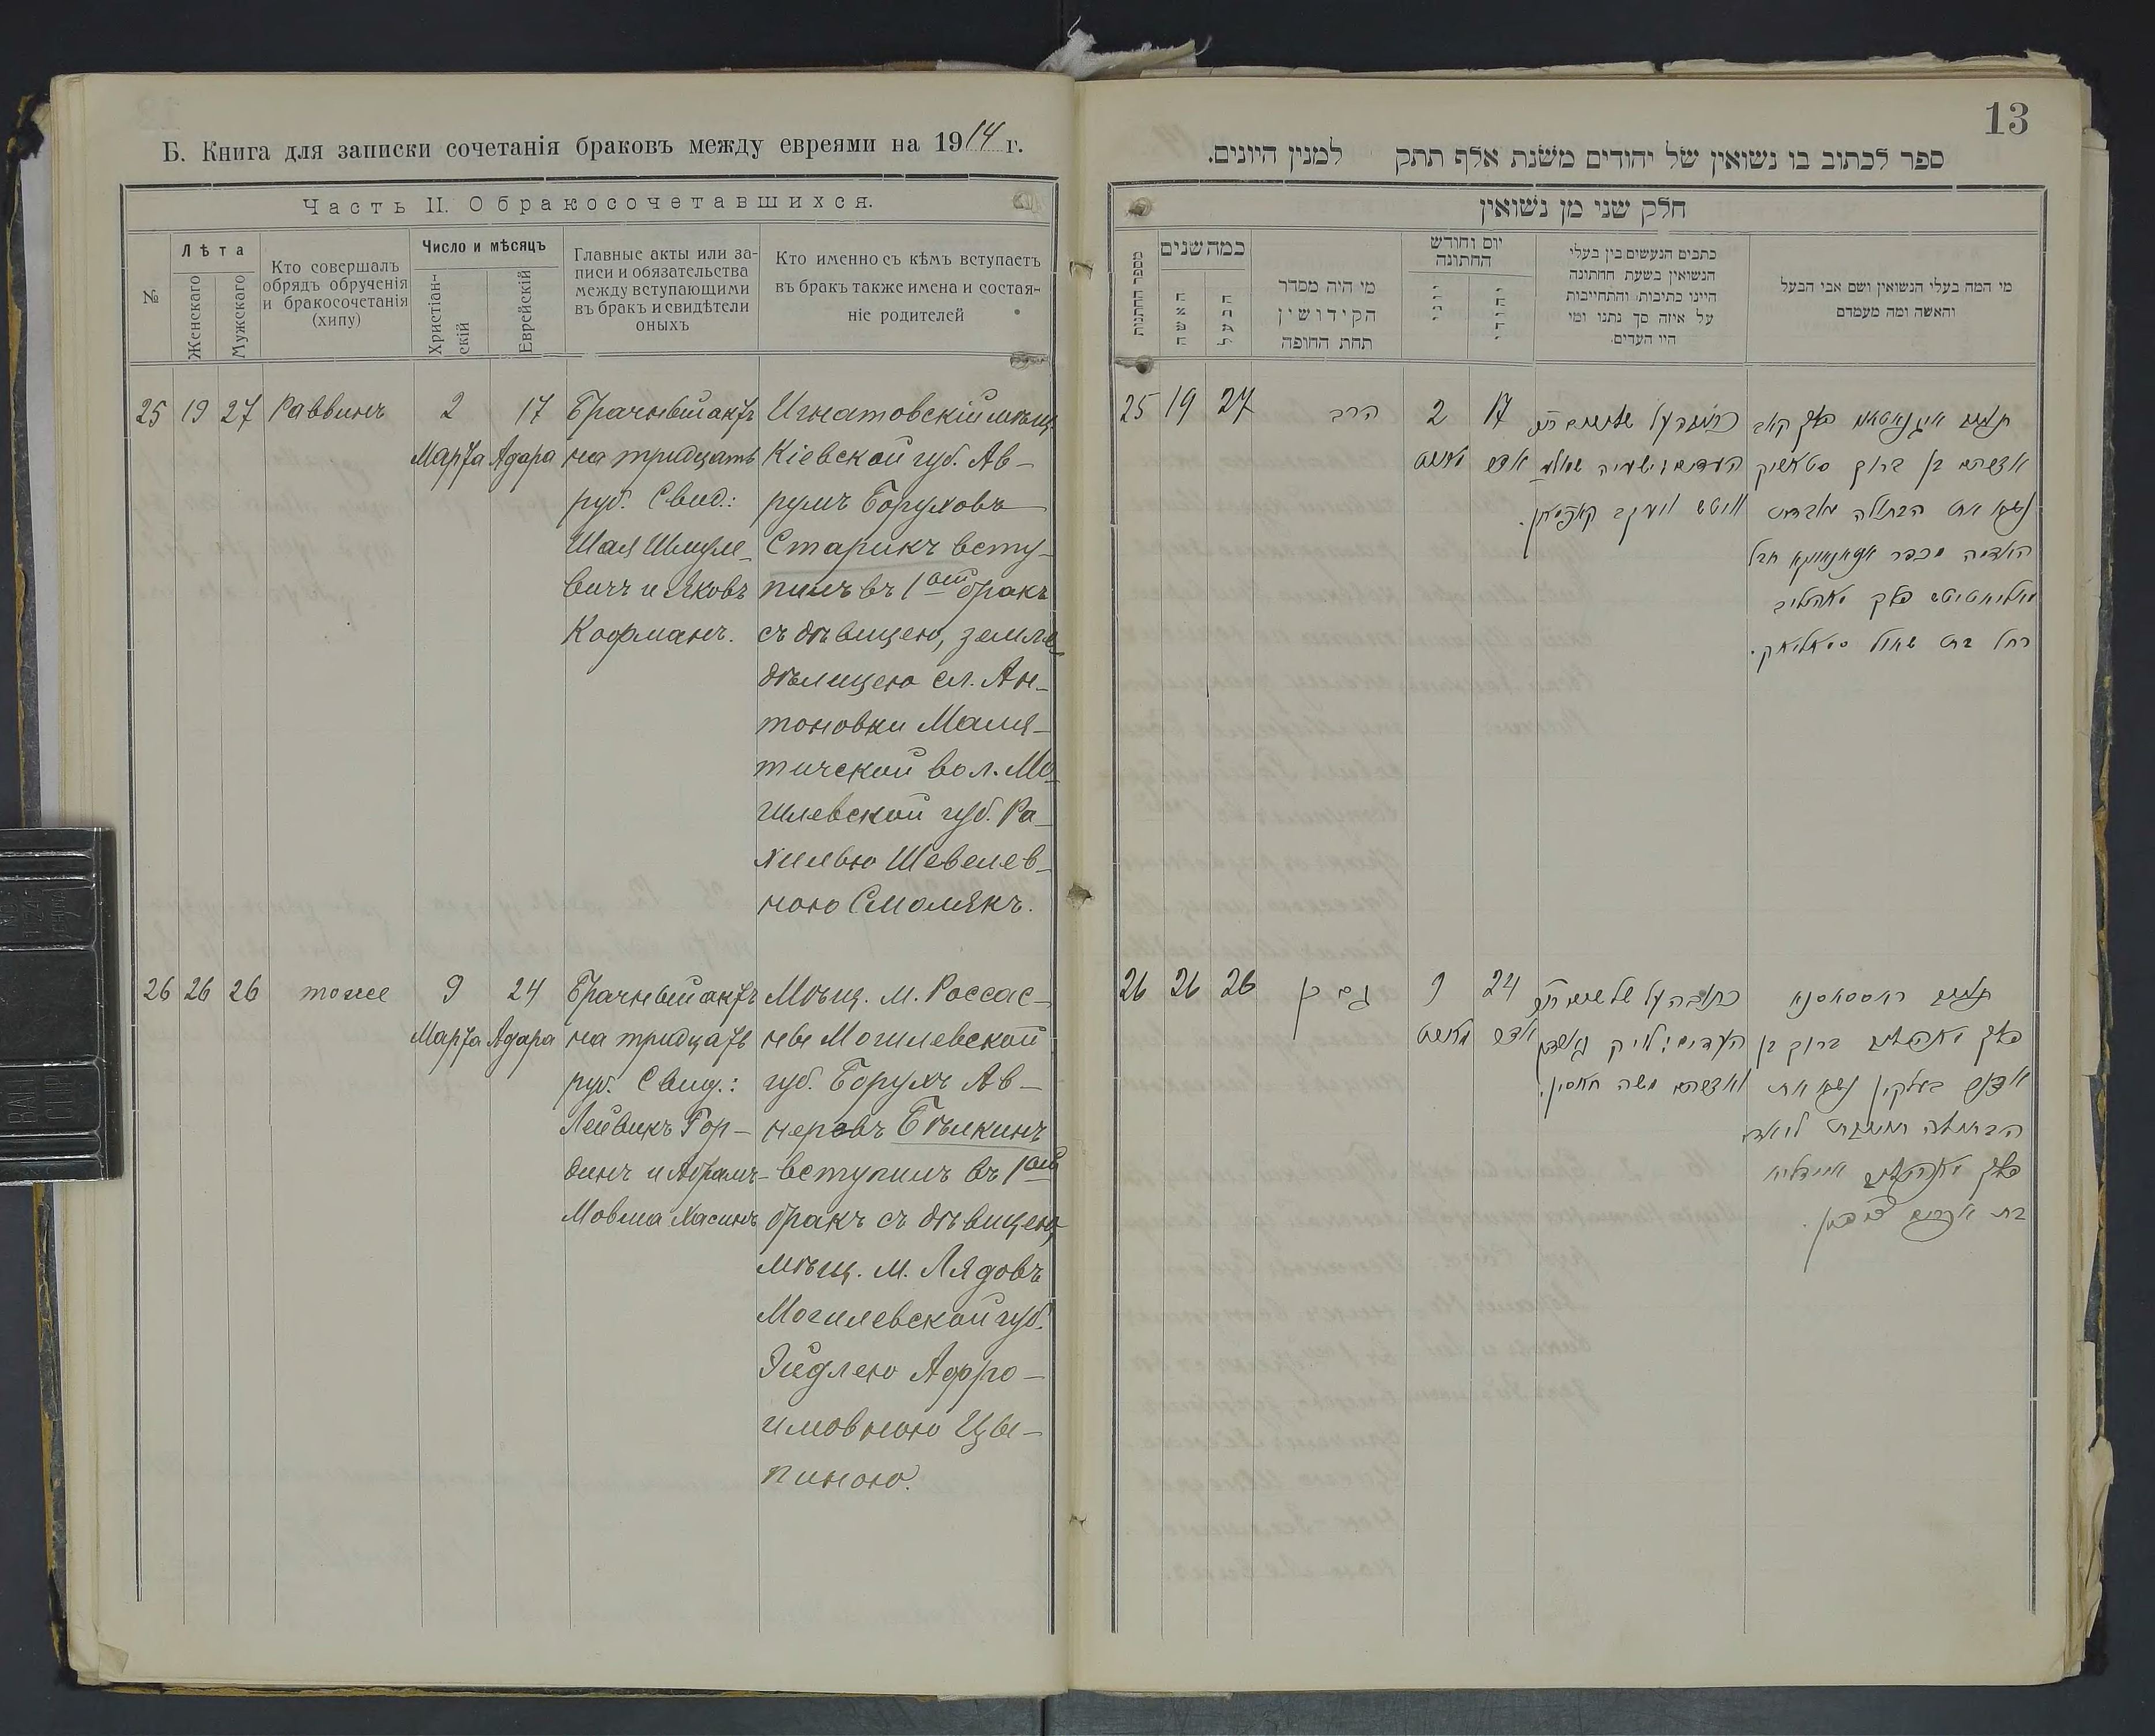 Б. Книга для записки сочетанія браковъ между евреями на 1914 г.
Часть II. О бракосочетавшихся.
№
Лѣта
Женскаго
Мужскаго
Кто совершалъ
обрядъ обрученія
и бракосочетанія
(хипу)
Число и мѣсяцъ
Христіан-
скій
Еврейскій
Главные акты или за-
писи и обязательства
между вступающими
въ бракъ и свидѣтели
оныхъ
Кто именно съ кѣмъ вступаетъ
въ бракъ также имена и состоя-
ніе родителей
25 19 27 Раввинъ 2 17
Марта Адара
Брачный актъ
на тридцать
руб. Свид.:
Шая Шмуле-
вичъ и Яковъ
Кофманъ.
Игнатовскій мѣщ.
Кіевской губ. Ав-
румъ Боруховъ
Старикъ всту-
пилъ въ 1ый бракъ
съ дѣвицею, земле-
дѣлицею сл. Ан-
тоновки Маля-
тичской вол. Мо-
гилевской губ. Ра-
хилью Шевелев-
ною Смолякъ.
26 26 26 тоже 9 24
Марта Адара
Брачный актъ
на тридцать
руб. Свид.:
Лейвикъ Гор-
динъ и Абрамъ-
Мовша Хасинъ
Мѣщ. м. Россас-
ны Могилевской
губ. Борухъ Ав-
неровъ Бѣлкинъ
вступилъ въ 1ый
бракъ съ дѣвицею,
мѣщ. м. Лядовъ
Могилевской губ.
Эйдлею Афро-
имовною Цы-
пиною.
13
ספר לכתוב בו נשואין של יהודים משנת אלף תתק למנין היונים.
חלק שני מן נשואין
מספר החתונות
כמה שנים
האשה
הבעל
מי היה מסדר
הקידושין
תחת החופה
יום וחודש
החתונה
יוני
יהודי
כתבים הנעשים בין בעלי
הנשואין בשעת החתונה
היינו כתיבות והתחייבות
על איזה סך נתנו ומי
היו העדים.
מי המה בעלי הנשואין ושם אבי הבעל
והאשה ומה מעמדם
25 19 27 הרב 2 17
מארט אדר
אברהם בן ברוך סטאריק
נשא את הבתולה
רחל בת שאול סמאליאק.
26 26 26 גם כן 9 24
מארט אדר
כתובה על שלשים
העדים: לייוויק גארדין
ואברהם משה חאסין.
ברוך בן
אבנר בעלקין נשא את
הבתולה
איידליא
בת אפרים ציפין.